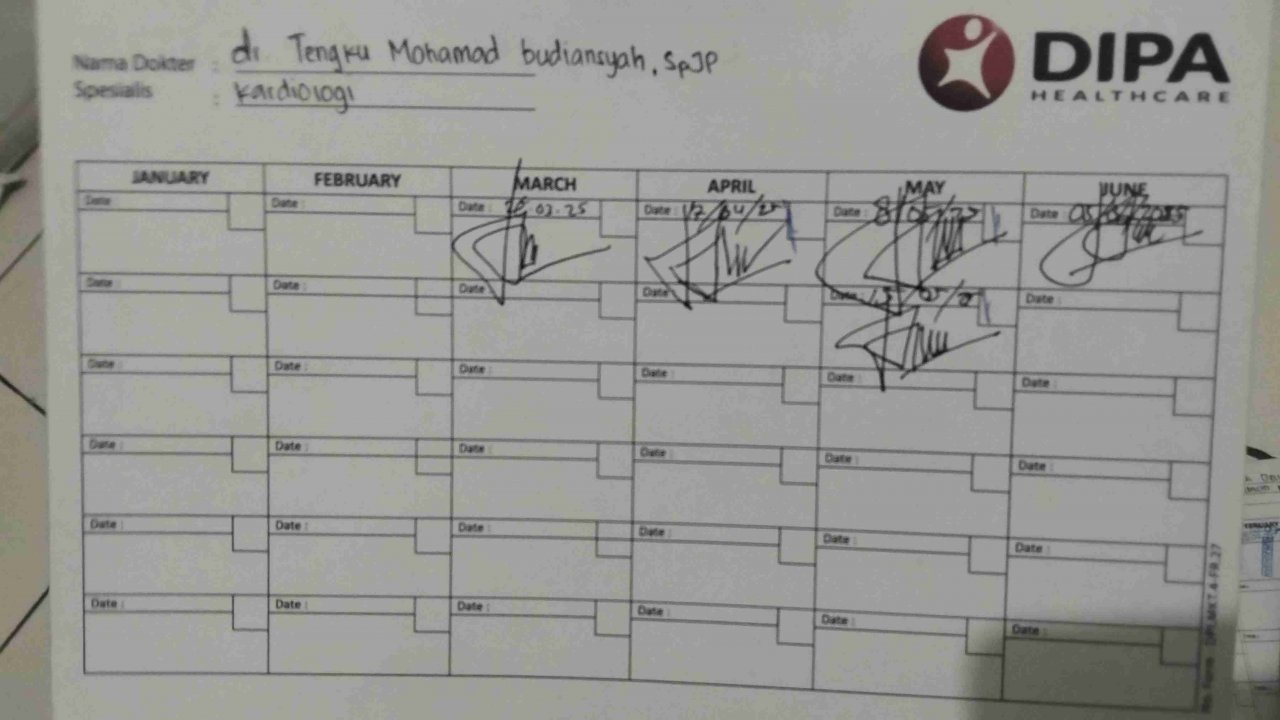 Nama Dokter : dr Tengku Mohamad budiansyah, SpJP
Spesialis : Kardiologi
DIPA
HEALTHCARE
JANUARY FEBRUARY MARCH APRIL MAY JUNE
Date : Date : Date : 03.25 Date : 17/04/25 Date : 8/05/25 Date : 05/06/2025
Date : Date : Date Date Date Date :
Date : Date : Date : Date : Date : Date :
Date : Date : Date : Date : Date : Date :
Date : Date : Date : Date : Date : Date :
Date : Date : Date : Date : Date : Date :